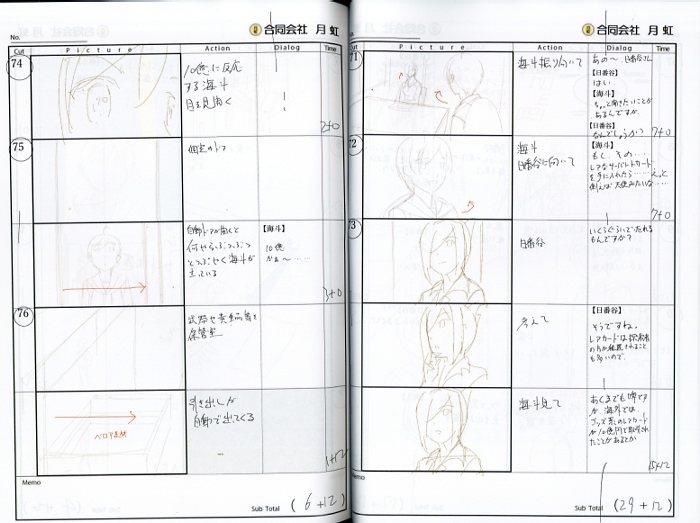 合同会社 月虹
No.
Cut Picture Action Dialog Time
74
10億に反応
する海斗
目を見開く
!
2+0
75
自動ドアが開くと
何やらぶつぶつ
とつぶやく海斗が
立っている
【海斗】
10億
かぁ〜……
3+0
76
保管室
引き出しが
自動で出てくる
1+12
Memo
Sub Total (6+12)
合同会社 月虹
No.
Cut Picture Action Dialog Time
71
海斗振り向いて
あの〜、日番谷さん
【日番谷】
はい
【海斗】
ちょっと聞きたいことが
あるんですが
【日番谷】
なんでしょうか?
7+0
72
海斗
日番谷に向いて
【海斗】
もし、その…
レアなサーバントカード
を手に入れたら……えっと
例えば天使みたいな……
7+0
73
日番谷
いくらぐらいで売れる
もんですか?
考えて
【日番谷】
そうですね。
レアカードは探索者
も多いので
海斗見て
あくまでも噂です
が、海外では、
が10億円で取引され
たことがあるとか
15+12
Memo
Sub Total (29+12)